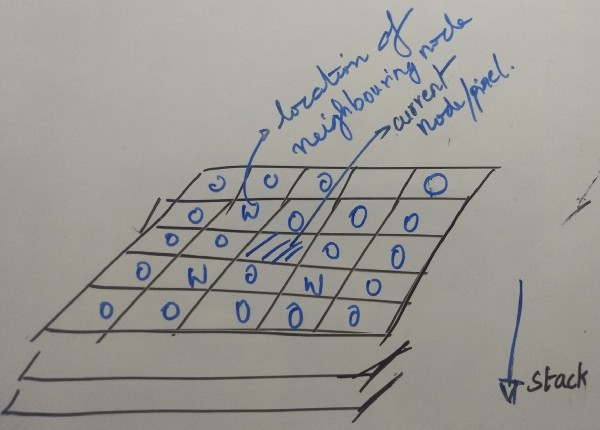 location of
neighbouring node
current
node/pixel.
0 0 0 0
0 W 0 0 0
0 0 0 0
0 W 0 W 0
0 0 0 0 0
stack